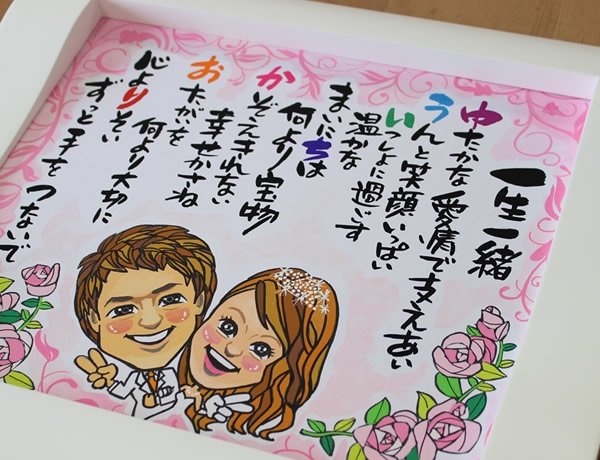 一生一緒
ゆたかな愛情で支えあい
うんと笑顔いっぱい
いっしょに過ごす
温かな
まいにちは
何より宝物
かぞえきれない
幸せかさね
おたがを
何より大切に
心よりそい
ずっと手をつないで